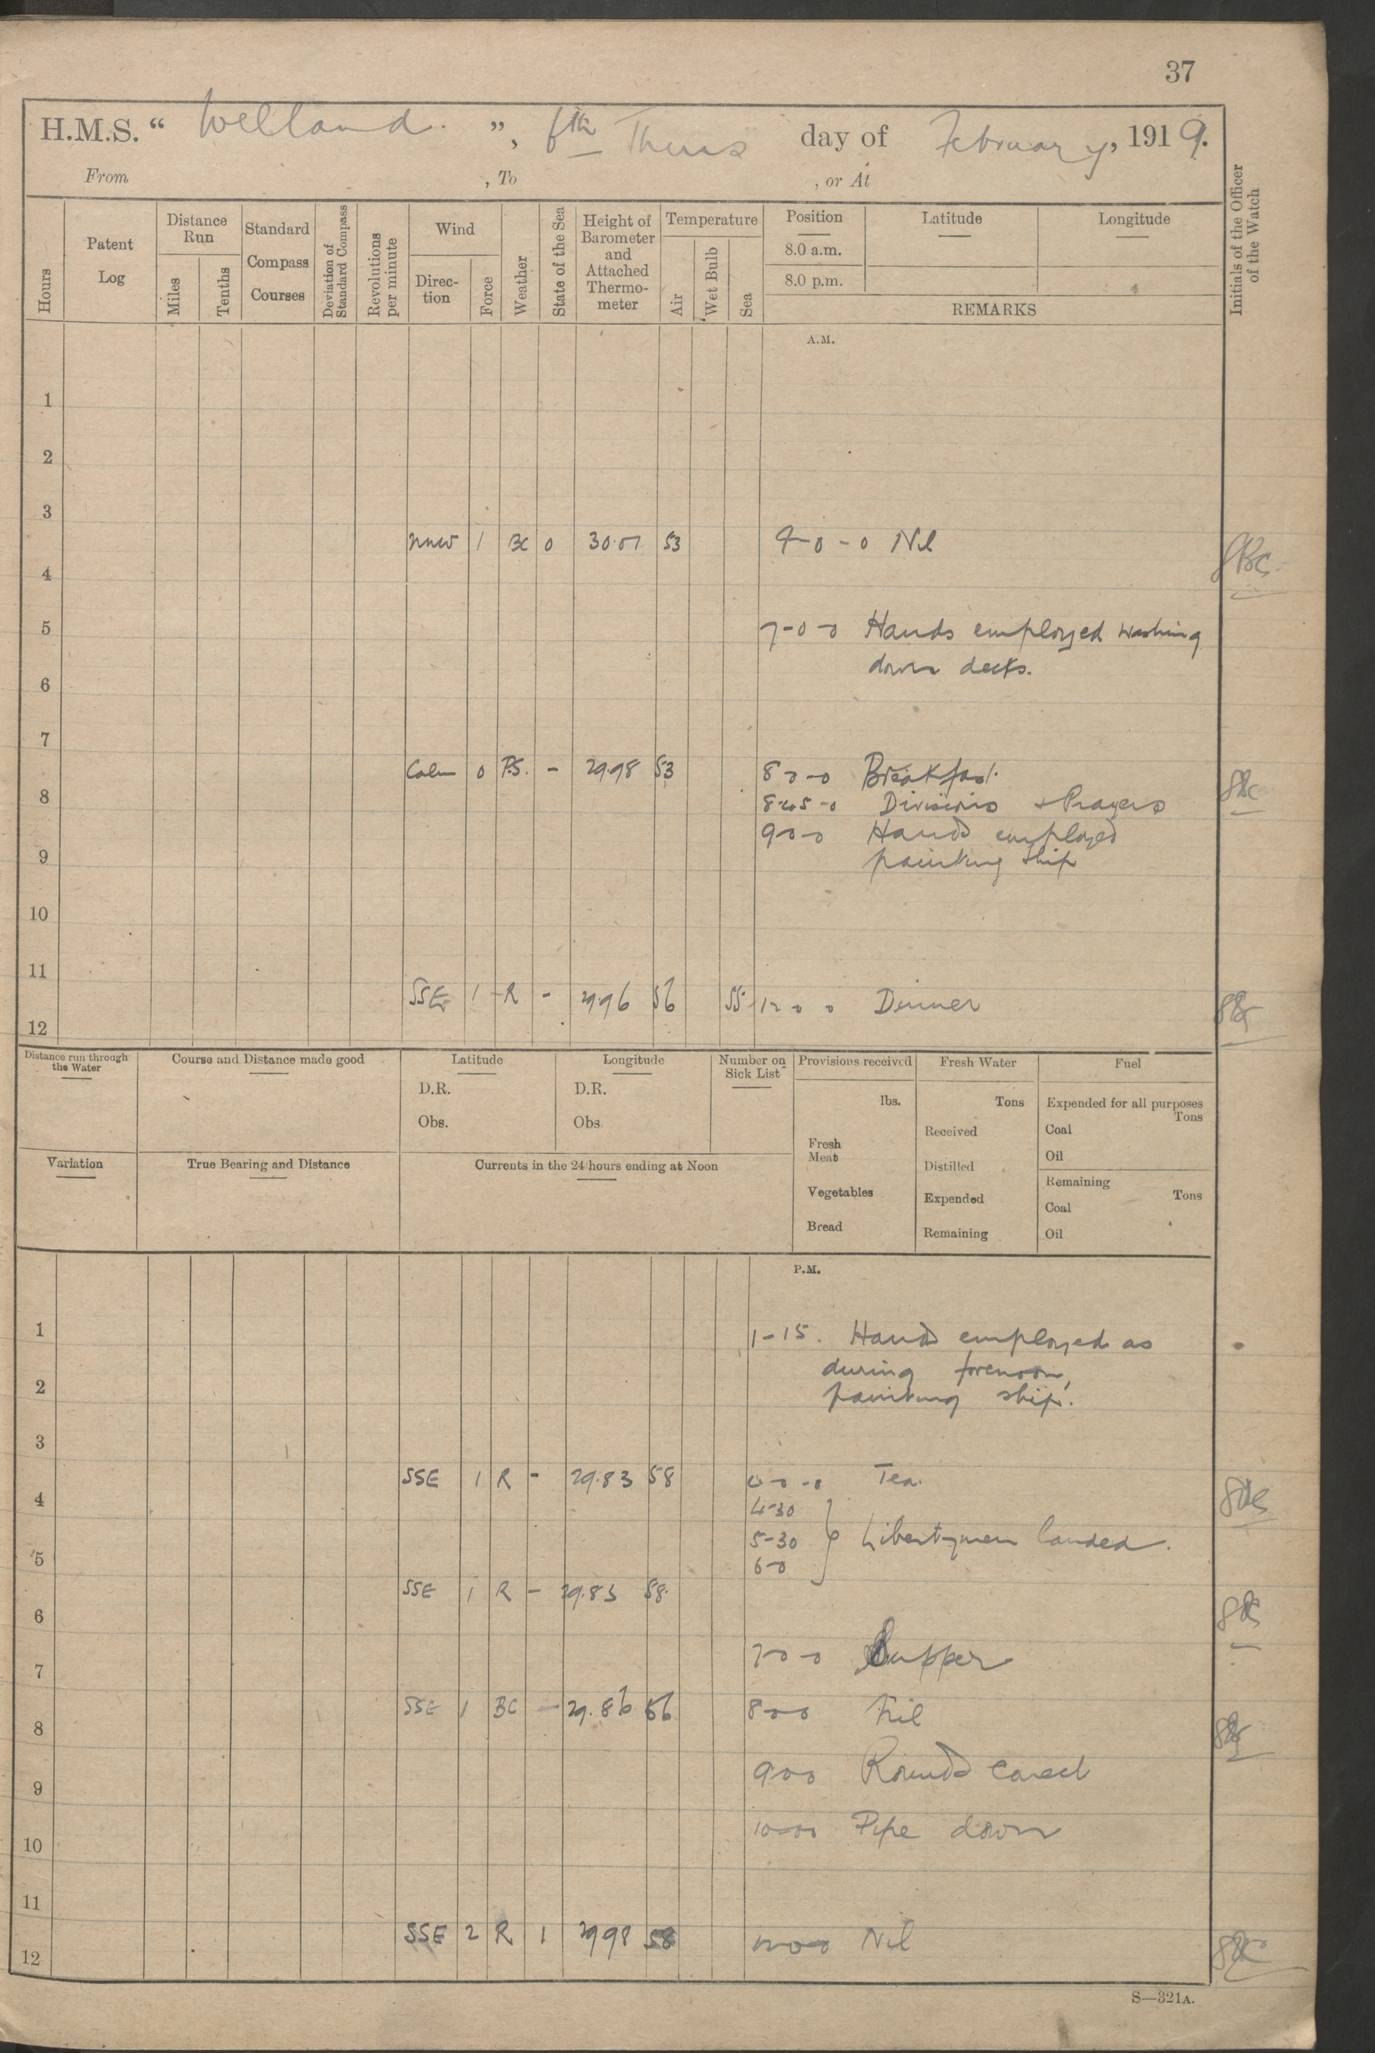 37
H.M.S. “ Welland. ”, 6th Thurs day of February, 1919.
From , To , or At
Hours
Patent Log
Distance Run
Miles
Tenths
Standard Compass Courses
Deviation of Standard Compass
Revolutions per minute
Wind
Direc-tion
Force
Weather
State of the Sea
Height of Barometer and Attached Thermo-meter
Temperature
Air
Wet Bulb
Sea
Position
8.0 a.m.
8.0 p.m.
Latitude
Longitude
REMARKS
Initials of the Officer of the Watch
A.M.
1
2
3
NNW 1 BC 0 30.01 53 4-0-0 Nil
4
5 7-0-0 Hands employed washing
down decks.
6
7
Calm 0 - 29.98 53 8-0-0 Breakfast.
8 8-45-0 Divisions + Prayers
9-0-0 Hands employed
9 painting ship
10
11
SSE 1 R - 29.96 56 55 12-0-0 Dinner
12
Distance run through the Water
Course and Distance made good
Latitude
D.R.
Obs.
Longitude
D.R.
Obs
Number on Sick List
Provisions received
lbs.
Fresh Meat
Vegetables
Bread
Fresh Water
Tons
Received
Distilled
Expended
Remaining
Fuel
Expended for all purposes
Tons
Coal
Oil
Remaining
Tons
Coal
Oil
Variation
True Bearing and Distance
Currents in the 24 hours ending at Noon
P.M.
1 1-15. Hands employed as
during forenoon,
2 painting ship.
3
SSE 1 R - 29.83 58 4-0-0 Tea.
4 4-30
5-30 } Libertymen landed.
5 6-0
SSE 1 R - 29.83 58
6
7-0-0 Supper
7
SSE 1 BC - 29.86 56 8-0-0 Nil
8
9-0-0 Rounds Correct
9
10-0-0 Pipe down
10
11
SSE 2 R 1 29.98 58 12-0-0 Nil
12
S—321A.